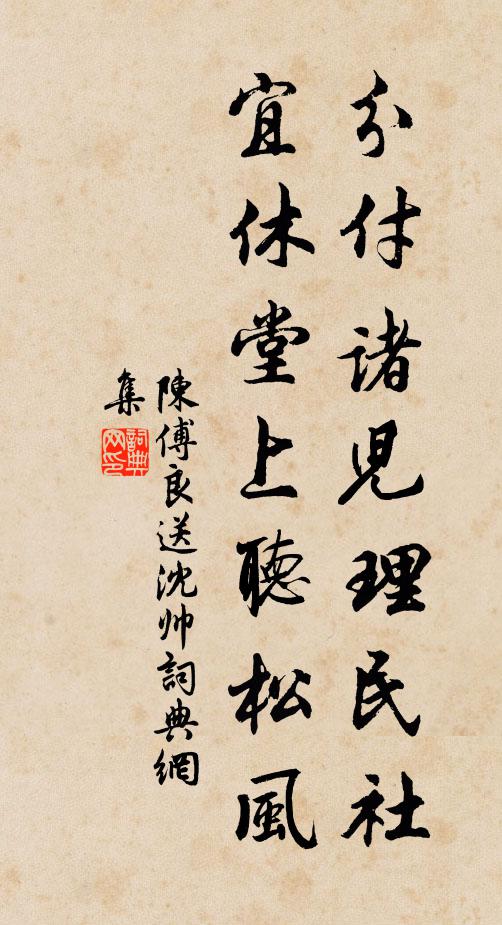 分付诸児理民社
宜休堂上聽松風
陳傅良送沈帅詞典網
集
詞典
网印